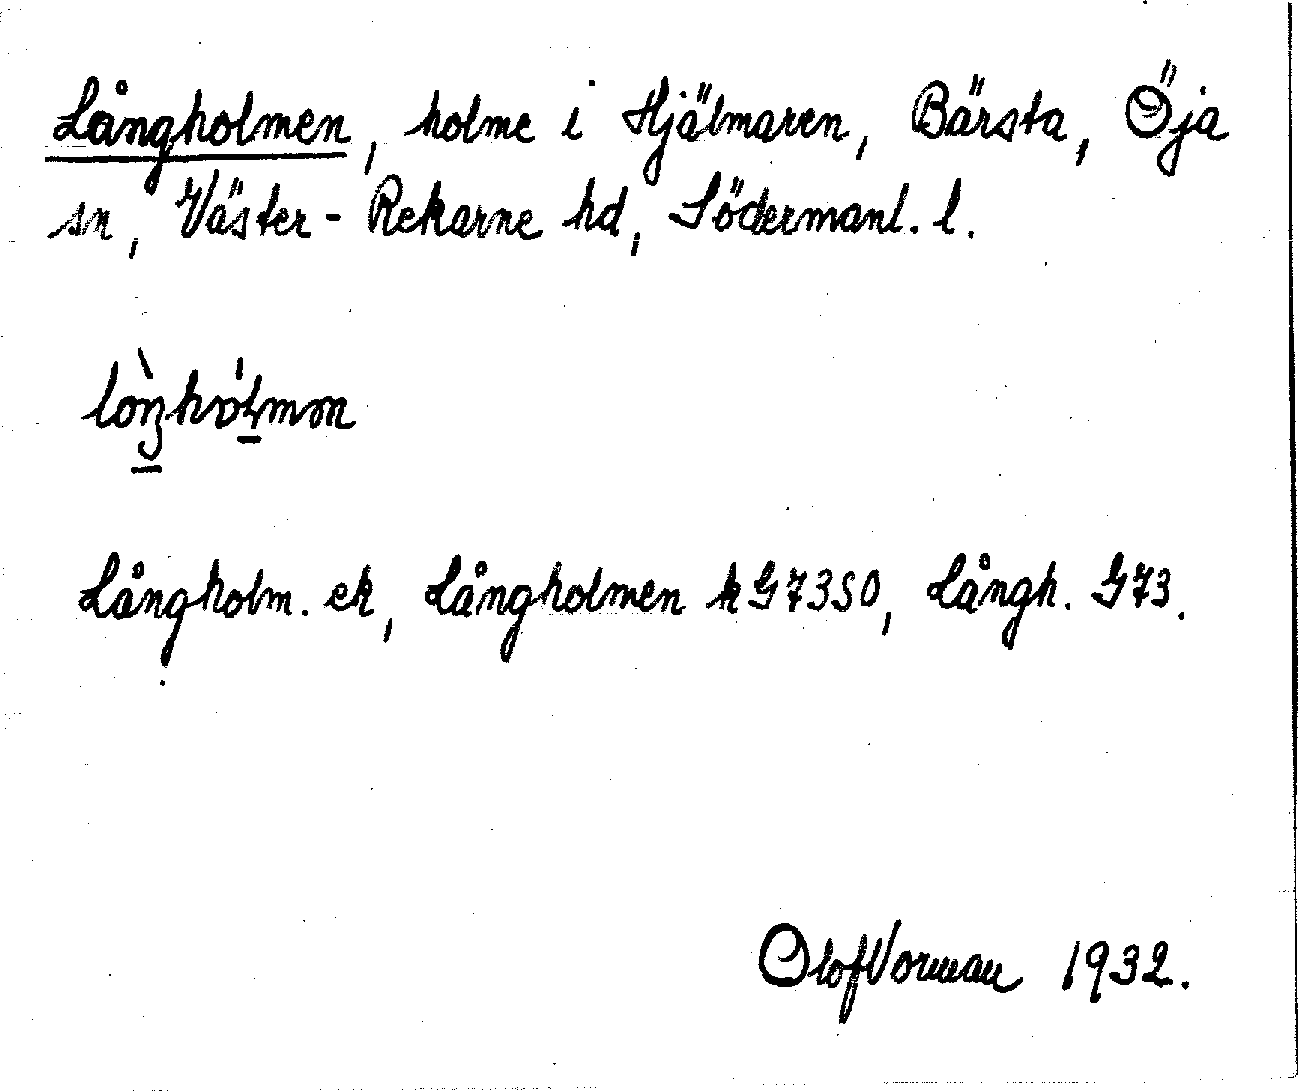 Långholmen, holme i Hjälmaren, Bärsta, Öja
sn, Väster-Rekarne hd, Södermanl. l.
Långholm. ek, Långholmen kG7350, Långh. G73.
Olof Vorman 1932.